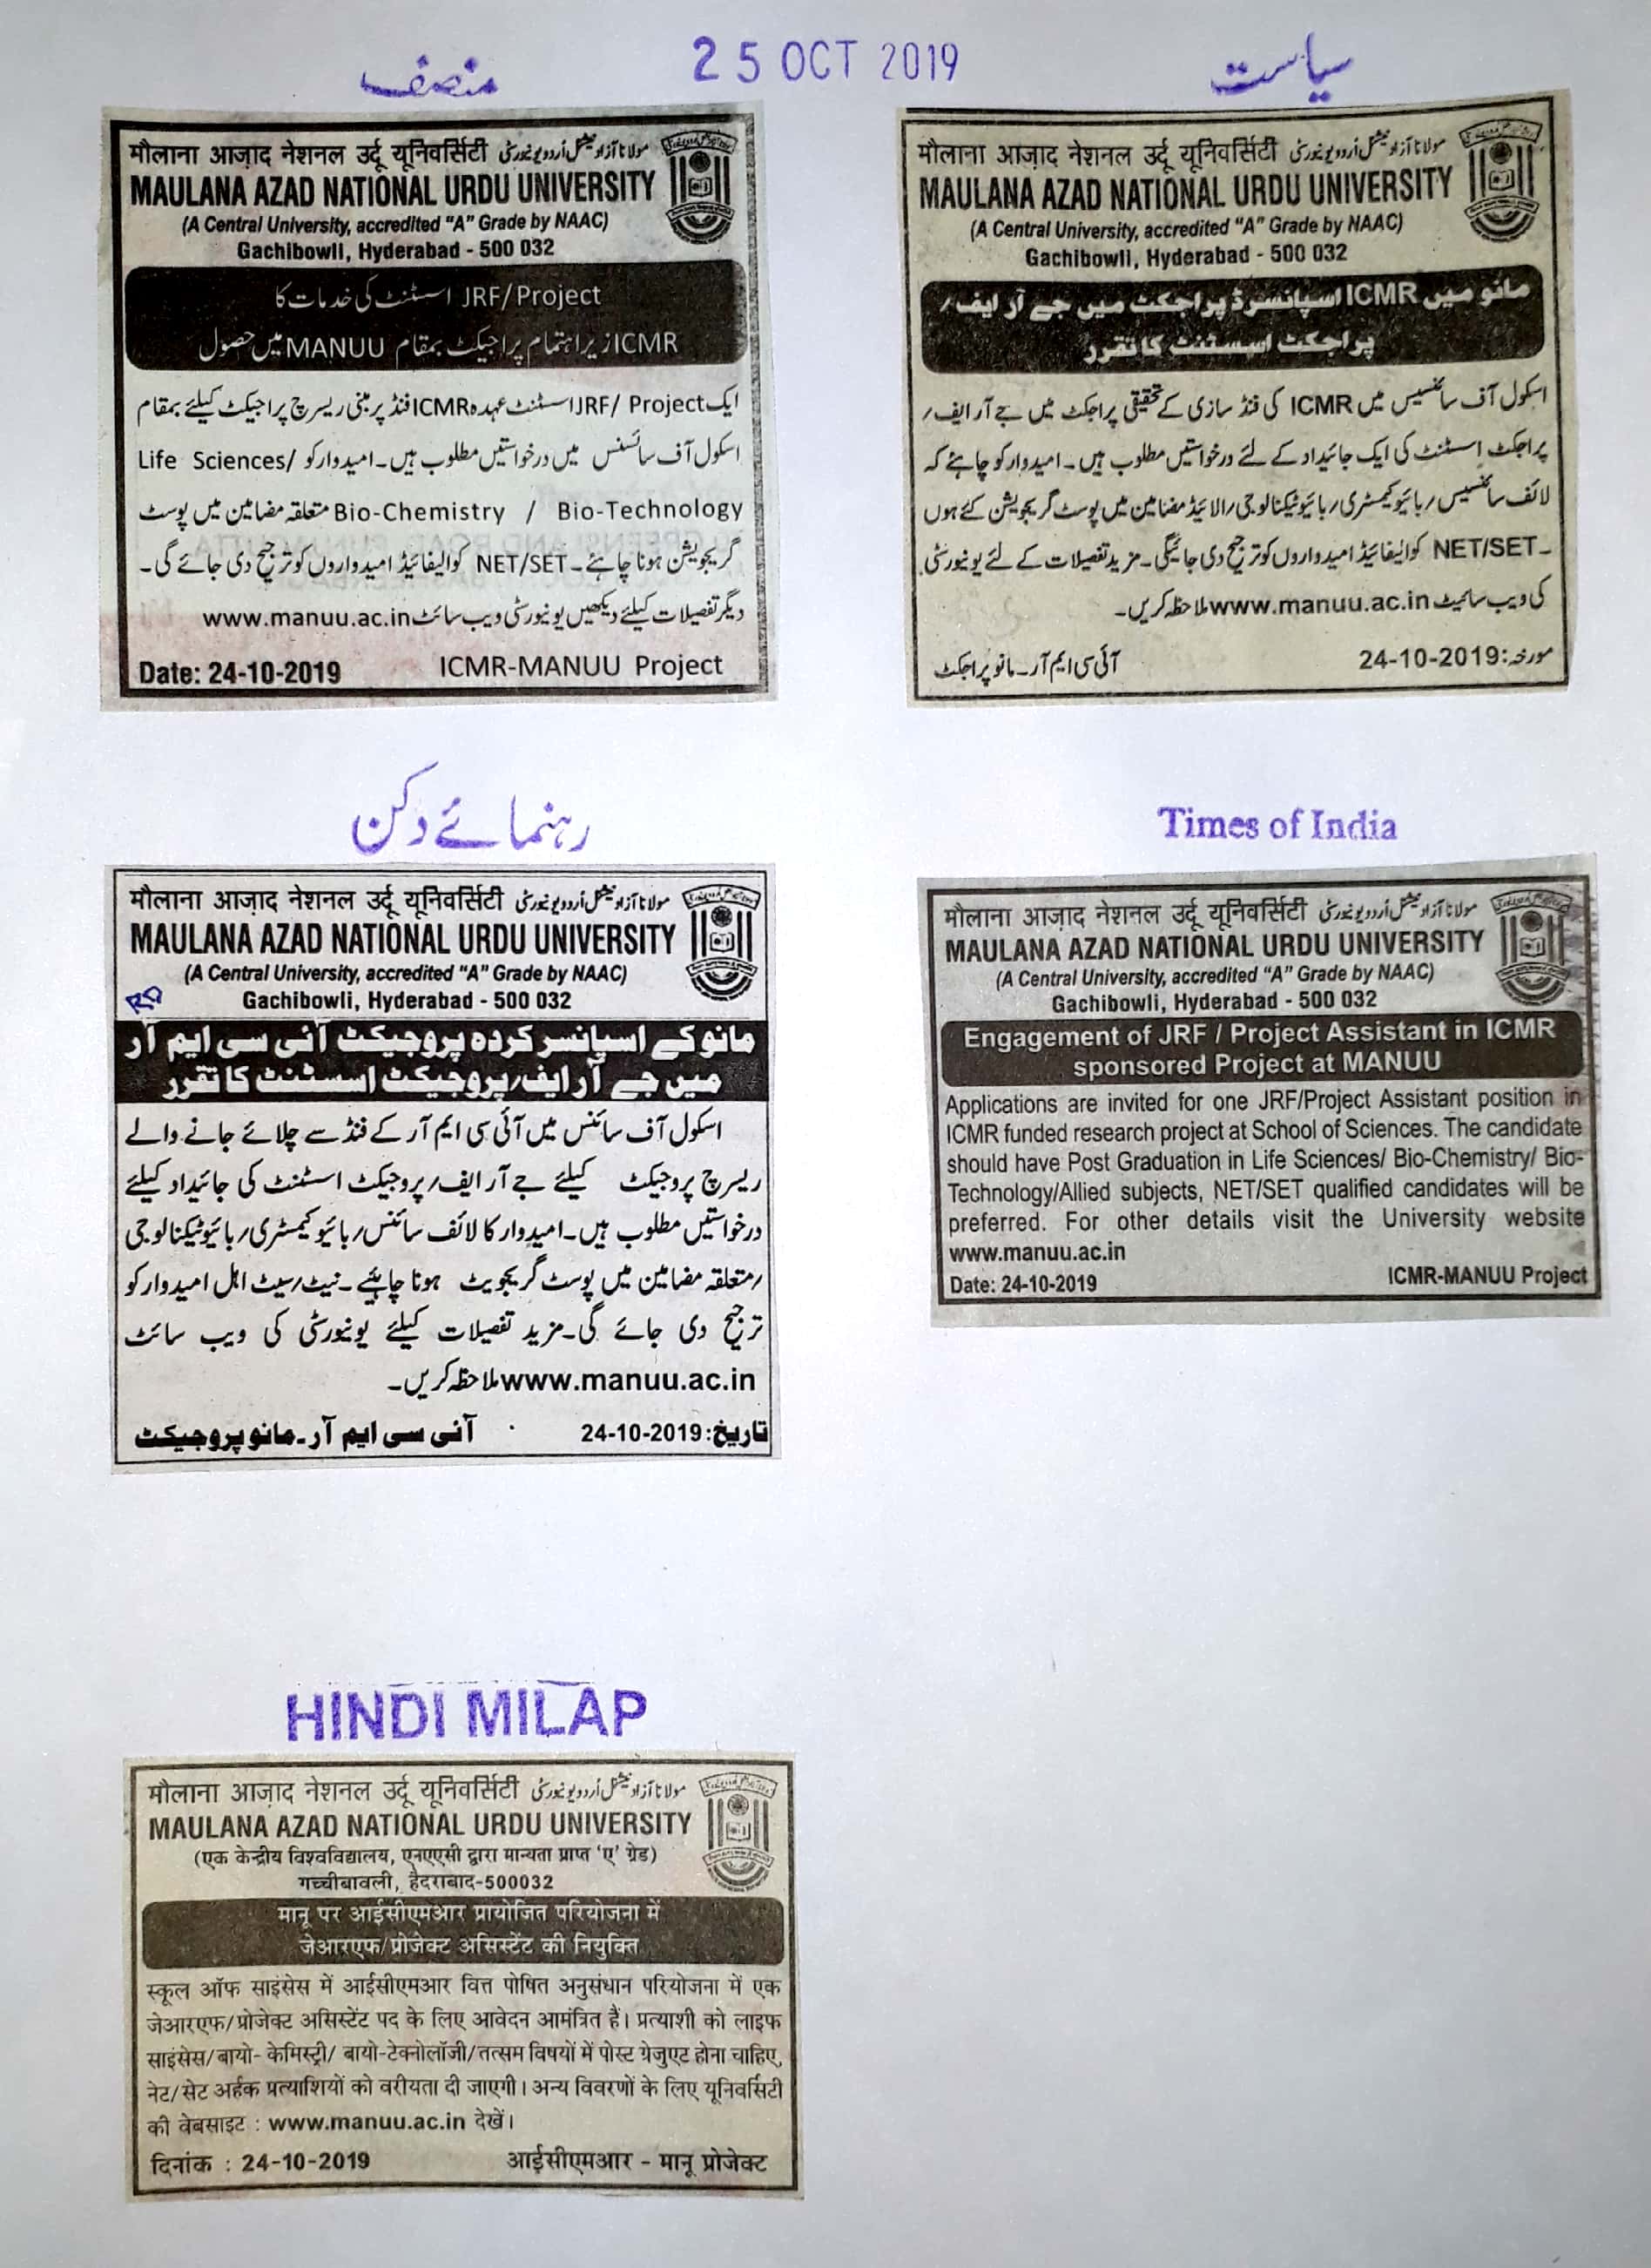 25 OCT 2019
منصف
मौलाना आज़ाद नेशनल उर्दू यूनिवर्सिटी مولانا آزاد نیشنل اُردو یونیورسٹی
MAULANA AZAD NATIONAL URDU UNIVERSITY
(A Central University, accredited “A” Grade by NAAC)
Gachibowli, Hyderabad - 500 032
JRF/Project اسسٹنٹ کی خدمات کا
ICMR زیر اہتمام پراجیکٹ بمقام MANUU میں حصول
ایک JRF/ Project اسسٹنٹ عہدہ ICMR فنڈ پر مبنی ریسرچ پراجیکٹ کیلئے بمقام
اسکول آف سائنسس میں درخواستیں مطلوب ہیں۔ امیدوار کو Life Sciences/
Bio-Chemistry / Bio-Technology متعلقہ مضامین میں پوسٹ
گریجویشن ہونا چاہئے۔ NET/SET کوالیفائیڈ امیدواروں کو ترجیح دی جائے گی۔
دیگر تفصیلات کیلئے دیکھیں یونیورسٹی ویب سائٹ www.manuu.ac.in
Date: 24-10-2019 ICMR-MANUU Project
سیاست
मौलाना आज़ाद नेशनल उर्दू यूनिवर्सिटी مولانا آزاد نیشنل اُردو یونیورسٹی
MAULANA AZAD NATIONAL URDU UNIVERSITY
(A Central University, accredited “A” Grade by NAAC)
Gachibowli, Hyderabad - 500 032
مانو میں ICMR اسپانسرڈ پراجکٹ میں جے آر ایف/
پراجکٹ اسسٹنٹ کا تقرر
اسکول آف سائنسیس میں ICMR کی فنڈ سازی کے تحقیقی پراجکٹ میں جے آر ایف/
پراجکٹ اسسٹنٹ کی ایک جائیداد کے لئے درخواستیں مطلوب ہیں۔ امیدوار کو چاہئے کہ
لائف سائنسیس/بائیو کیمسٹری/بائیو ٹیکنالوجی/الائیڈ مضامین میں پوسٹ گریجویشن کئے ہوں
۔NET/SET کوالیفائیڈ امیدواروں کو ترجیح دی جائیگی۔ مزید تفصیلات کے لئے یونیورسٹی
کی ویب سائیٹ www.manuu.ac.in ملاحظہ کریں۔
مورخہ: 24-10-2019 آئی سی ایم آر۔ مانو پراجکٹ
رہنمائے دکن
मौलाना आज़ाद नेशनल उर्दू यूनिवर्सिटी مولانا آزاد نیشنل اُردو یونیورسٹی
MAULANA AZAD NATIONAL URDU UNIVERSITY
(A Central University, accredited “A” Grade by NAAC)
RD Gachibowli, Hyderabad - 500 032
مانو کے اسپانسر کردہ پروجیکٹ آئی سی ایم آر
میں جے آر ایف/پروجیکٹ اسسٹنٹ کا تقرر
اسکول آف سائنس میں آئی سی ایم آر کے فنڈ سے چلائے جانے والے
ریسرچ پروجیکٹ کیلئے جے آر ایف/پروجیکٹ اسسٹنٹ کی جائیداد کیلئے
درخواستیں مطلوب ہیں۔ امیدوار کا لائف سائنس/بائیو کیمسٹری/بائیو ٹیکنالوجی
/متعلقہ مضامین میں پوسٹ گریجویٹ ہونا چاہئیے۔ نیٹ/سیٹ اہل امیدوار کو
ترجیح دی جائے گی۔ مزید تفصیلات کیلئے یونیورسٹی کی ویب سائٹ
www.manuu.ac.in ملاحظہ کریں۔
تاریخ: 24-10-2019 آئی سی ایم آر۔ مانو پروجیکٹ
Times of India
मौलाना आज़ाद नेशनल उर्दू यूनिवर्सिटी مولانا آزاد نیشنل اُردو یونیورسٹی
MAULANA AZAD NATIONAL URDU UNIVERSITY
(A Central University, accredited “A” Grade by NAAC)
Gachibowli, Hyderabad - 500 032
Engagement of JRF / Project Assistant in ICMR
sponsored Project at MANUU
Applications are invited for one JRF/Project Assistant position in
ICMR funded research project at School of Sciences. The candidate
should have Post Graduation in Life Sciences/ Bio-Chemistry/ Bio-
Technology/Allied subjects, NET/SET qualified candidates will be
preferred. For other details visit the University website
www.manuu.ac.in
Date: 24-10-2019 ICMR-MANUU Project
HINDI MILAP
मौलाना आज़ाद नेशनल उर्दू यूनिवर्सिटी مولانا آزاد نیشنل اُردو یونیورسٹی
MAULANA AZAD NATIONAL URDU UNIVERSITY
(एक केन्द्रीय विश्वविद्यालय, एनएएसी द्वारा मान्यता प्राप्त ‘ए’ ग्रेड)
गच्चीबावली, हैदराबाद-500032
मानू पर आईसीएमआर प्रायोजित परियोजना में
जेआरएफ/प्रोजेक्ट असिस्टेंट की नियुक्ति
स्कूल ऑफ साइंसेस में आईसीएमआर वित्त पोषित अनुसंधान परियोजना में एक
जेआरएफ/प्रोजेक्ट असिस्टेंट पद के लिए आवेदन आमंत्रित हैं। प्रत्याशी को लाइफ
साइंसेस/बायो- केमिस्ट्री/ बायो-टेक्नोलॉजी/तत्सम विषयों में पोस्ट ग्रेजुएट होना चाहिए,
नेट/सेट अर्हक प्रत्याशियों को वरीयता दी जाएगी। अन्य विवरणों के लिए यूनिवर्सिटी
की वेबसाइट : www.manuu.ac.in देखें।
दिनांक : 24-10-2019 आईसीएमआर - मानू प्रोजेक्ट